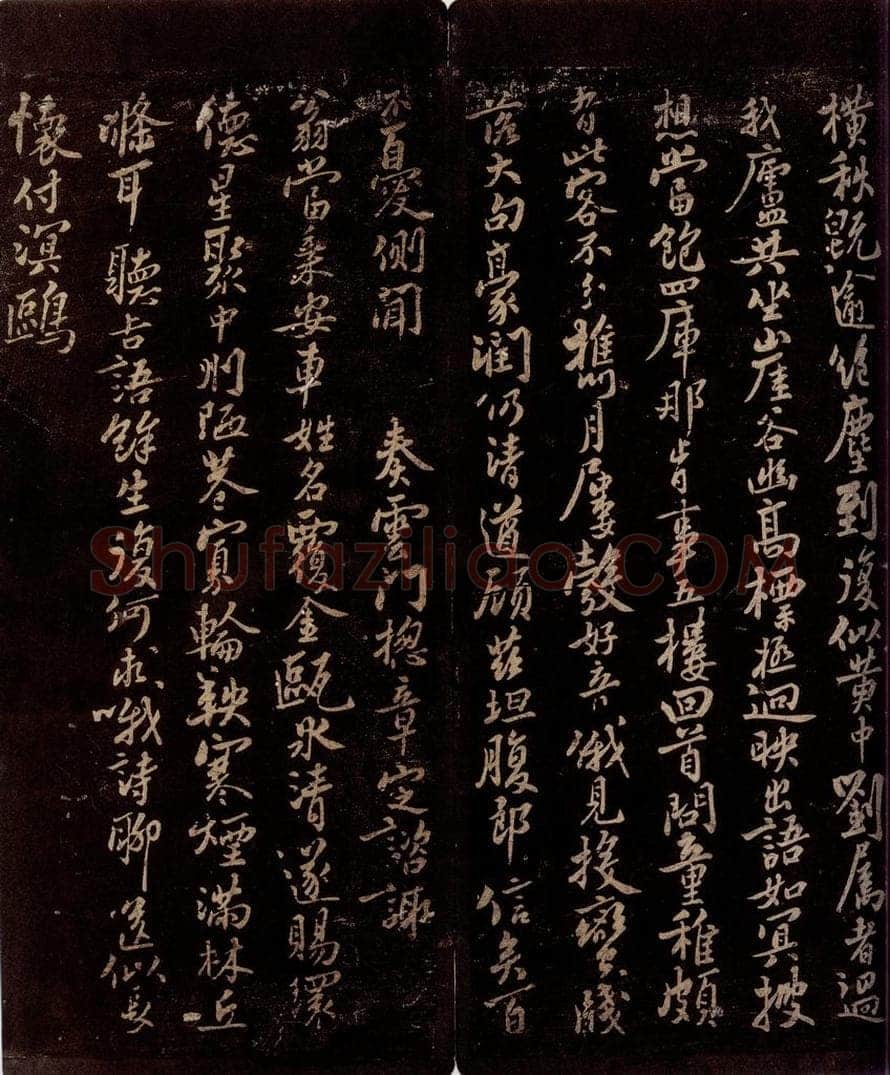 橫秋既逾絕塵到復似黃中劉屬者過
我廬共坐山崖谷幽高標極迴映出語如冥搜
想當飽四庫那肯事五樓回首問童稚頗
者此客不分攜月屢發好音俄見投蠻牋
落大句豪潤仍清遒顧茲坦腹郎信矣百
不百憂側聞 奏雲門總章定諮諏
翁當乘安車姓名覆金甌冰清遂賜環
德星聚中州陋巷寡輪鞅寒煙滿林丘
滌耳聽吉語餘生復何求哦詩聊送似長
懷付溟鷗
Shufaziliao.COM